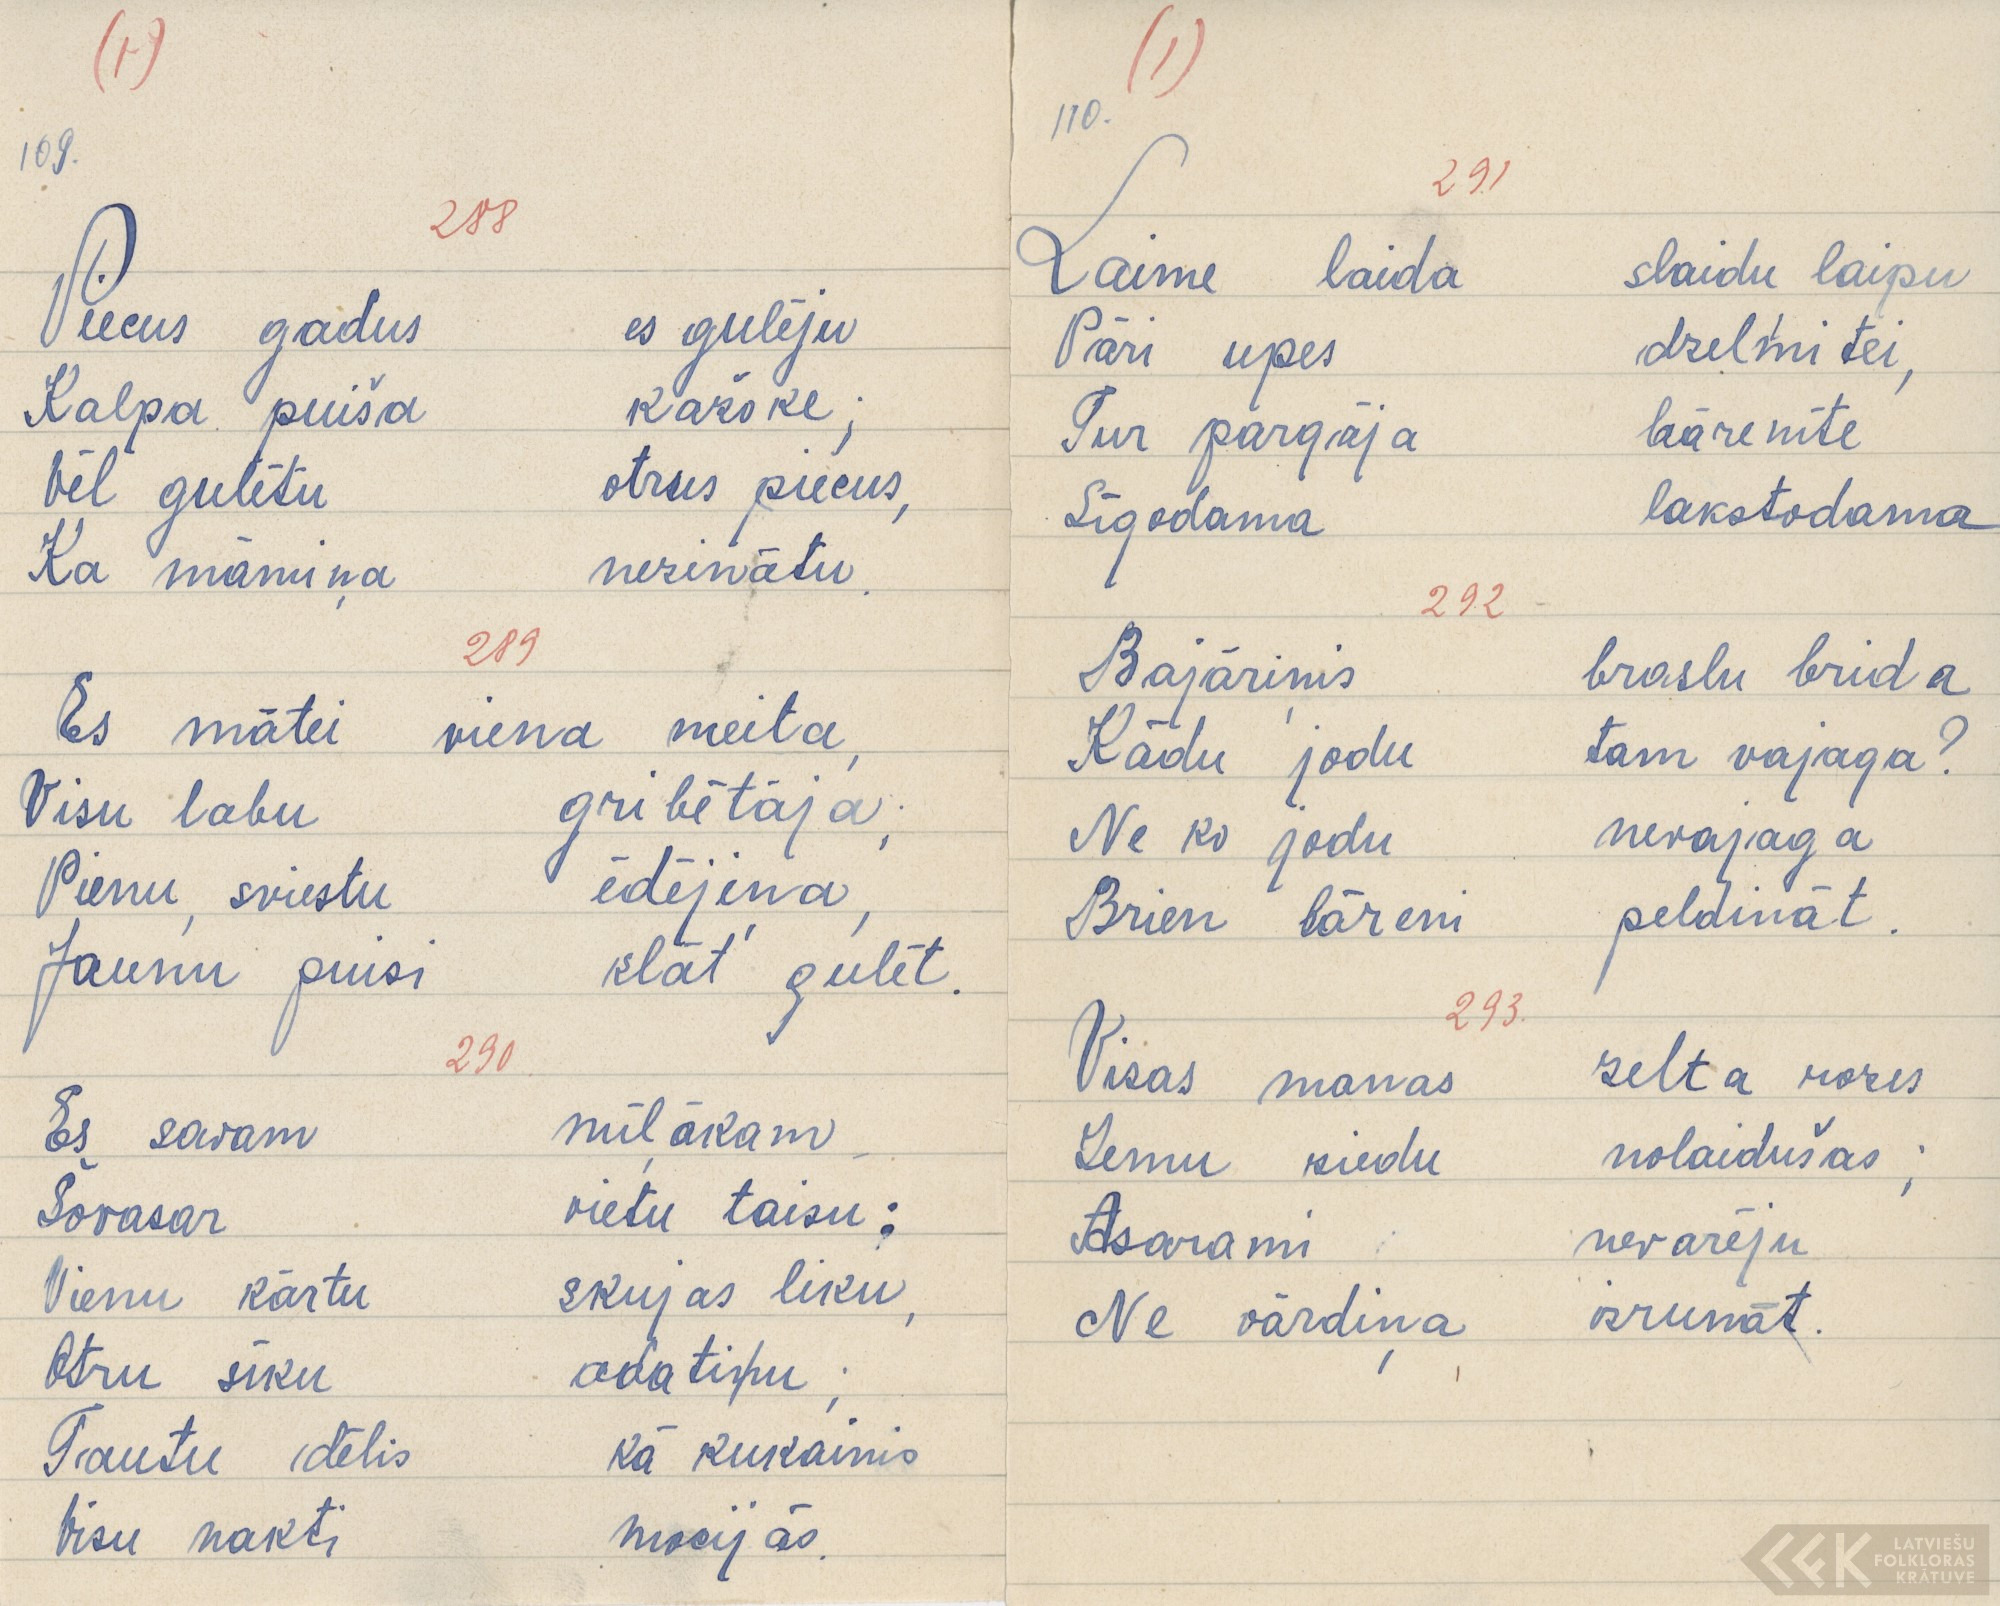 (1)
109.
288
Piecus gadus es gulēju
Kalpa puiša kažoke;
Vēl gulētu otrus piecus,
Ka māmiņa nezinātu.
289
Es mātei viena meita,
Visu labu gribētāja;
Pienu, sviestu ēdējiņa,
Jaunu puisi klāt gulēt.
290
Es savam mīļākam
Šovasar vietu taisu:
Vienu kārtu skujas liku,
Otru sīku adatiņu;
Tautu dēlis kā kukainis
Visu nakti mocijās.
(1)
110.
291
Laime laida slaidu laipu
Pāri upes dzelmītei,
Tur pārgāja bārenīte
Līgodama lakstodama
292
Bajāriņis braslu brida
Kādu jodu tam vajaga?
Ne ko jodu nevajaga
Brien bāreni peldināt.
293.
Visas manas zelta rozes
Zemu ziedu nolaidušas;
Asarami nevarēju
Ne vārdiņa izrunāt.
LATVIEŠU
FOLKLORAS
KRĀTUVE